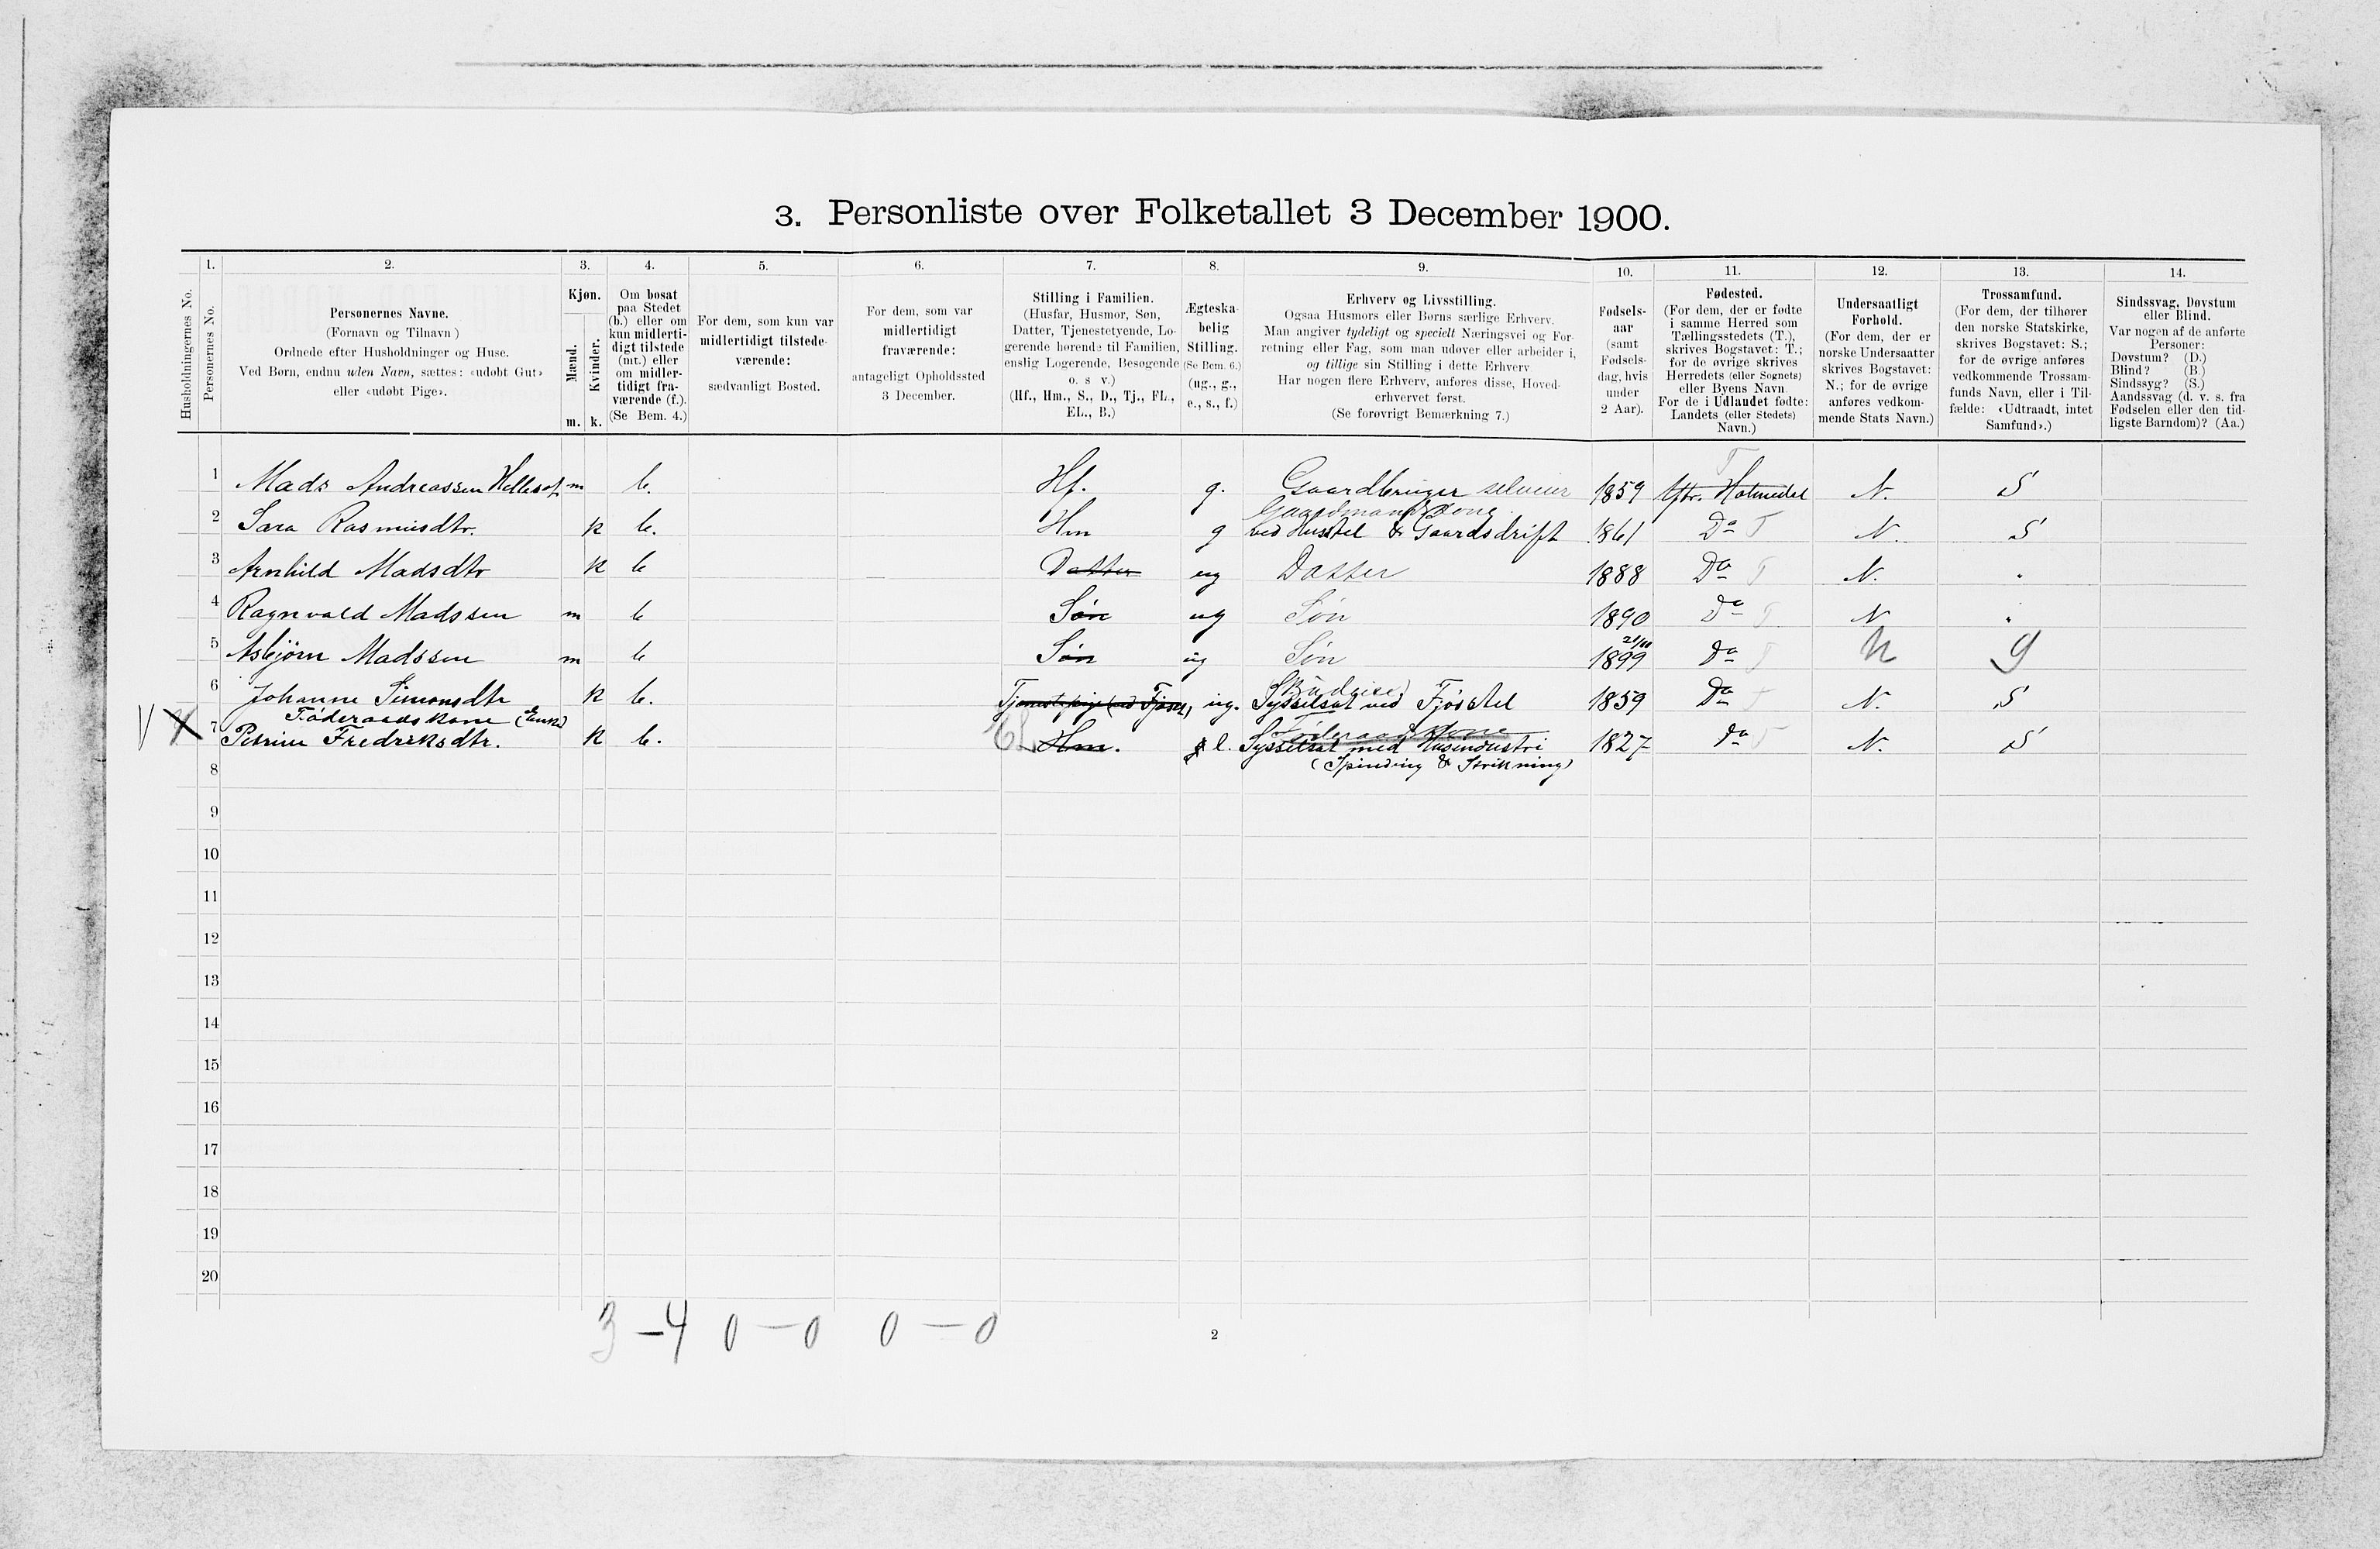 3. Personliste over Folketallet 3 December 1900.
1. 2. 3. 4. 5. 6. 7. 8. 9. 10. 11. 12. 13. 14.
Husholdningernes No.
Personernes No.
Personernes Navne.
(Fornavn og Tilnavn)
Ordnede efter Husholdninger og Huse.
Ved Børn, endnu uden Navn, sættes: «udøbt Gut»
eller «udøbt Pige».
Kjøn.
Mænd.
Kvinder.
m. k.
Om bosat
paa Stedet
(b.) eller om
kun midlerti-
digt tilstede
(mt.) eller
om midler-
tidigt fra-
værende (f.).
(Se Bem. 4.)
For dem, som kun var
midlertidigt tilstede-
værende:
sædvanligt Bosted.
For dem, som var
midlertidigt
fraværende:
antageligt Opholdssted
3 December.
Stilling i Familien.
(Husfar, Husmor, Søn,
Datter, Tjenestetyende, Lo-
gerende hørende til Familien,
enslig Logerende, Besøgende
o. s v.)
(Hf., Hm., S., D., Tj., FL.,
EL., B.)
Ægteska-
belig
Stilling.
(Se Bem. 6.)
(ug., g.,
e., s., f.)
Erhverv og Livsstilling.
Ogsaa Husmors eller Børns særlige Erhverv.
Man angiver tydeligt og specielt Næringsvei og For-
retning eller Fag, som man udøver eller arbeider i,
og tillige sin Stilling i dette Erhverv
Har nogen flere Erhverv, anføres disse, Hoved-
erhvervet først.
(Se forøvrigt Bemærkning 7.)
Fødsels-
aar
(samt
Fødsels-
dag, hvis
under
2 Aar).
Fødested.
(For dem, der er fødte
i samme Herred som
Tællingsstedets (T.),
skrives Bogstavet: T.;
for de øvrige skrives
Herredets (eller Sognets)
eller Byens Navn
For de i Udlandet fødte:
Landets (eller Stedets)
Navn.)
Undersaatligt
Forhold.
(For dem, der er
norske Undersaatter
skrives Bogstavet:
N.; for de øvrige
anføres vedkom-
mende Stats Navn.)
Trossamfund.
(For dem, der tilhører
den norske Statskirke,
skrives Bogstavet: S.;
for de øvrige anføres
vedkommende Trossam-
funds Navn, eller i Til-
fælde: «Udtraadt, intet
Samfund».)
Sindssvag, Døvstum
eller Blind.
Var nogen af de anførte
Personer:
Døvstum? (D.)
Blind? (B.)
Sindssyg? (S.)
Aandssvag (d. v. s. fra
Fødselen eller den tid-
ligste Barndom)? (Aa.)
T
1 Mads Andreassen m b. Hf. g. Gaardbruger selveier 1859 Ytr. Holmedal N. S
Gaardmandskone
2 Sara Rasmusdtr. k b. Hm g ved Husstel & Gaardsdrift 1861 Do T N. S
3 Arnhild Madsdtr k b Datter ug Datter 1888 Do T N. "
4 Ragnvald Madssen m b Søn ug Søn 1890 Do T N "
21/10
5 Asbjørn Madssen m b Søn ug Søn 1899 Do T N
(Budeie)
6 Johanne Simonsdtr k b. Tjenestepige (ved Fjøset) ug. Sysselsat ved Fjøsstel 1859 Do T N. S
Føderaadskone (Enke) Føderaadskone
7 Petrine Fredriksdtr. k b. EL Hm. Sysselsat med Husindustri 1827 do T N. S
(Spinding & Strikning)
8
9
10
11
12
13
14
15
16
17
18
19
20
3 – 4 0 – 0 0 – 0
2